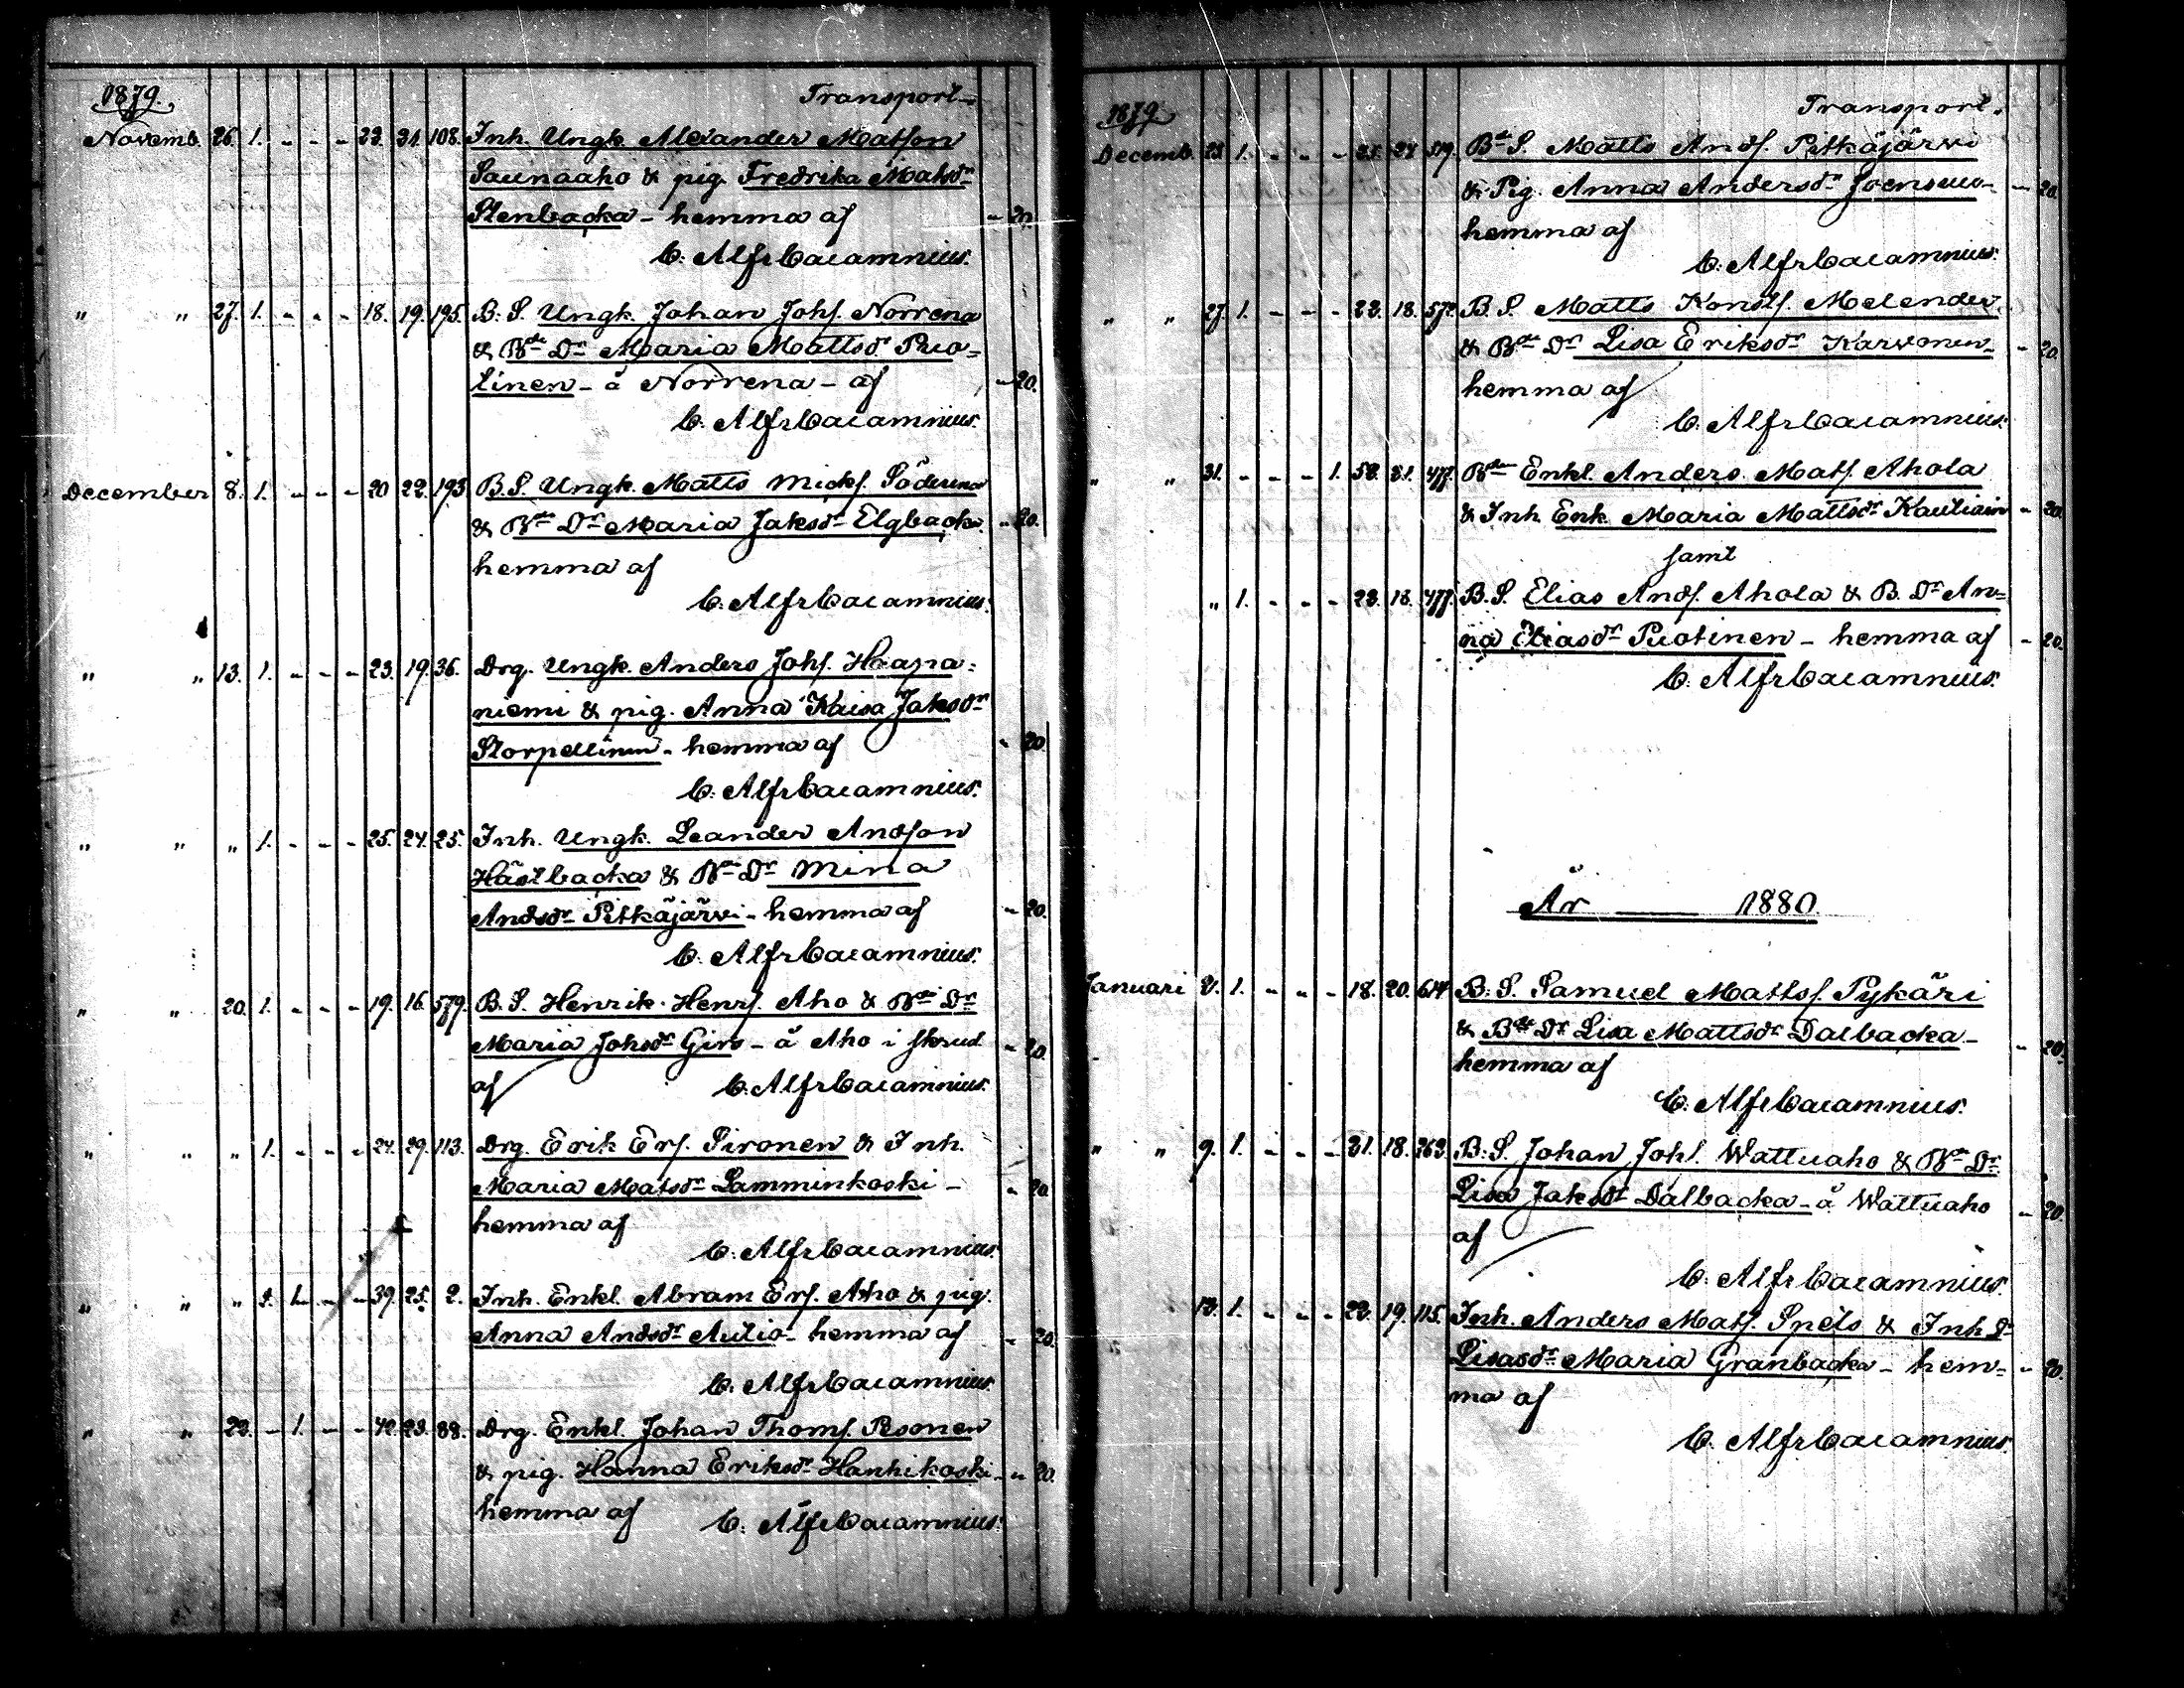 1879. Transport
Novemb. 26. 1. - - - 23. 31. 108. Inh. Ungk. Alexander Matsson
Saunaaho & pig. Fredrika Matsdr
Stenbacka - hemma af - 20.
C. Alfr Cajamnius.
" " 27. 1. - - - 18. 19. 195. B. S. Ungk. Johan Johs. Norrena
& Bde Dr Maria Mattsdr Puo-
tinen - å Norrena - af - 20.
C. Alfr Cajamnius.
December 8. 1. - - - 20 22. 193 B. S. Ungk. Matts Micks. Söderena
& Bde Dr Maria Jaksdr Elgbacka - 20.
hemma af
C. Alfr Cajamnius.
" " 13. 1. - - - 23. 19. 36. Drg. Ungk. Anders Johs. Haapa-
niemi & pig. Anna Kaisa Jaksdr
Storpellinen - hemma af - 20.
C. Alfr Cajamnius.
" " " 1. - - - 25. 24. 25. Inh. Ungk. Leander Andsson
Hästbacka & Bde Dr Mina
Andsdr Pitkäjärvi - hemma af - 20.
C. Alfr Cajamnius.
" " 20. 1. - - - 19. 16. 579. B. S. Henrik Henrs. Aho & Bde Dr
Maria Johsdr Girs - å Aho i skrud - 20.
af C. Alfr Cajamnius.
" " " 1. - - - 24. 29. 113. Drg. Erik Ers. Pironen & Inh.
Maria Matsdr Lamminkoski - - 20
hemma af
C. Alfr Cajamnius.
" " " 1. - - 39. 25. 2. Inh. Enkl. Abram Ers. Aho & pig.
Anna Andsdr Autio - hemma af - 20.
C. Alfr Cajamnius.
" " 22. - 1. - - 42. 23. 88. Drg. Enkl. Johan Thoms. Pesonen
& pig. Hanna Eriksdr Hanhikoski - - 20.
hemma af C. Alfr Cajamnius.
1879 Transport.
Decemb. 23. 1. - - - 24 519. Bde S. Matts Ands. Pitkäjärvi
& Pig. Anna Andersdr Joensuu - - 20.
hemma af
C. Alfr Cajamnius.
" " 27. 1. - - - 23. 18. 572. B. S. Matts Konsts. Melender
& Bde Dr Lisa Eriksdr Karvonen - - 20.
hemma af
C. Alfr Cajamnius.
" " 31. - - - 1. 58. 51. 477. Bde Enkl. Anders Mats. Ahola
& Inh. Enk. Maria Mattsdr - 20.
samt
" 1. - - - 23. 18. 477. B. S. Elias Ands. Ahola & B. Dr An-
na Eliasdr Puotinen - hemma af - 20.
C. Alfr Cajamnius.
År 1880
Januari 2. 1. - - - 18. 20. 614 B. S. Samuel Mattss. Pykäri
& Bde Dr Lisa Mattsdr Dalbacka - - 20.
hemma af
C. Alfr Cajamnius.
" " 9. 1. - - - 21. 18. 263. B. S. Johan Johs. Wattuaho & Bde Dr
Lisa Jaksdr Dalbacka - å Wattuaho - 20.
af
C. Alfr Cajamnius.
13. 1. - - - 22. 19. 115. Inh. Anders Mats. Spets & Inh Dr
Lisasdr Maria Granbacka - hem- - 20.
ma af
C. Alfr Cajamnius.